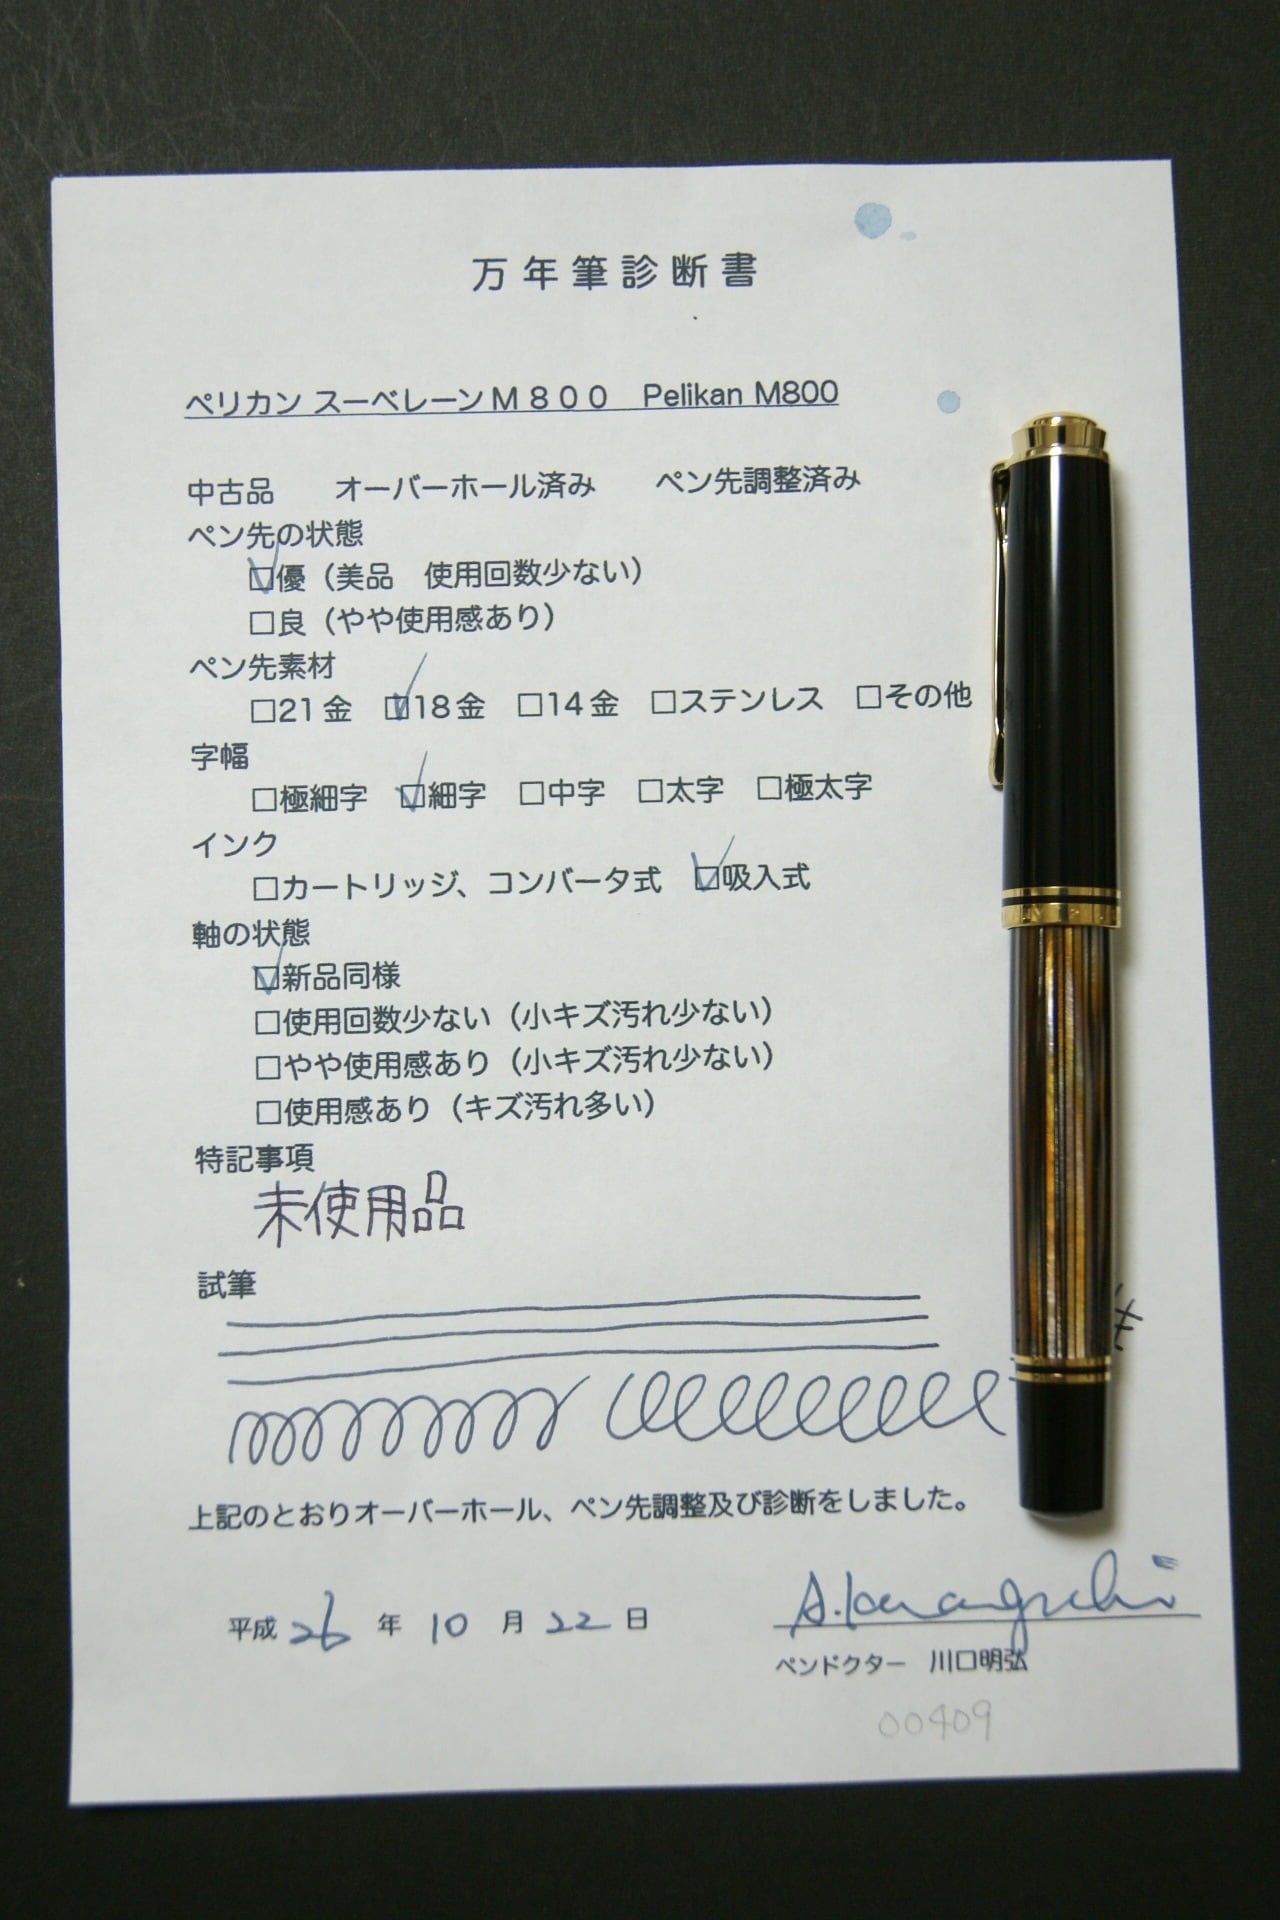 万年筆診断書
ペリカン スーベレーンM800　Pelikan M800
中古品　オーバーホール済み　ペン先調整済み
ペン先の状態
☑優（美品　使用回数少ない）
□良（やや使用感あり）
ペン先素材
□21金　☑18金　□14金　□ステンレス　□その他
字幅
□極細字　☑細字　□中字　□太字　□極太字
インク
□カートリッジ、コンバータ式　☑吸入式
軸の状態
☑新品同様
□使用回数少ない（小キズ汚れ少ない）
□やや使用感あり（小キズ汚れ少ない）
□使用感あり（キズ汚れ多い）
特記事項
未使用品
試筆
上記のとおりオーバーホール、ペン先調整及び診断をしました。
平成26年10月22日
A.Kawaguchi
ペンドクター　川口明弘
00409